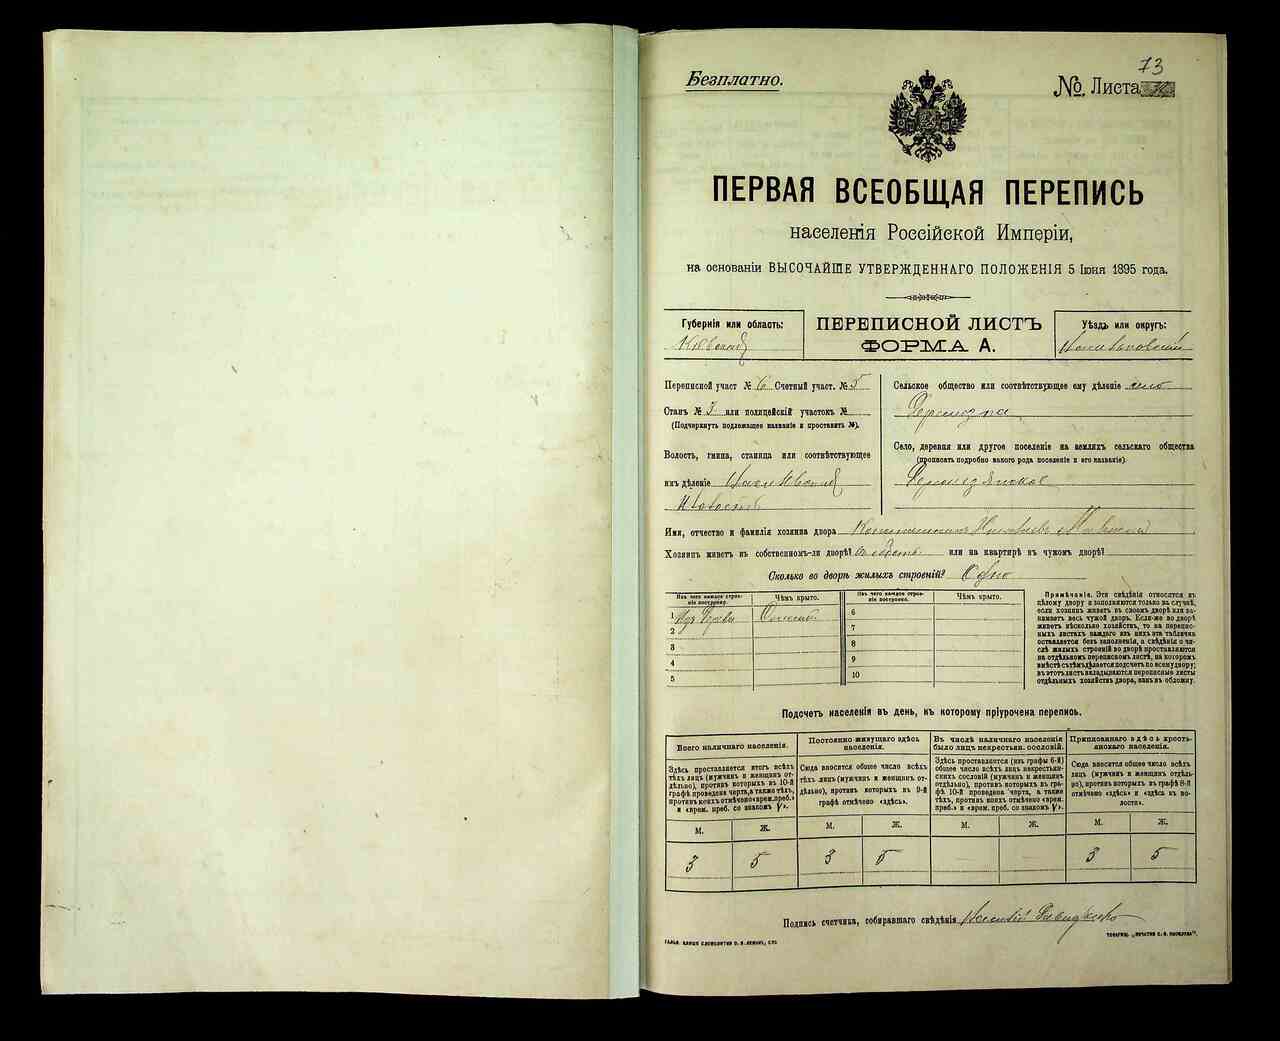 73
Безплатно.
№ Листа
ПЕРВАЯ ВСЕОБЩАЯ ПЕРЕПИСЬ
населенія Россійской Имперіи,
на основаніи ВЫСОЧАЙШЕ УТВЕРЖДЕННАГО ПОЛОЖЕНІЯ 5 Іюня 1895 года.
Губернія или область:
ПЕРЕПИСНОЙ ЛИСТЪ
ФОРМА А.
Уѣздъ или округъ:
Переписной участ № 6 Счетный участ. № 5
Станъ № 3 или полицейскій участокъ №
(Подчеркнуть подлежащее названіе и проставить №).
Волость, гмина, станица или соотвѣтствующее
имъ дѣленіе
Сельское общество или соотвѣтствующее ему дѣленіе село
Село, деревня или другое поселеніе на земляхъ сельскаго общества
(прописать подробно какого рода поселеніе и его названіе).
Имя, отчество и фамилія хозяина двора
Хозяинъ живетъ въ собственномъ-ли дворѣ? или на квартирѣ въ чужомъ дворѣ?
Сколько во дворѣ жилыхъ строеній? Одно
Изъ чего каждое строеніе построено. Чѣмъ крыто. Изъ чего каждое строеніе построено. Чѣмъ крыто.
1 Изъ дерева 6
2 7
3 8
4 9
5 10
Примѣчаніе. Эти свѣдѣнія относятся къ
цѣлому двору и заполняются только въ случаѣ,
если хозяинъ живетъ въ своемъ дворѣ или занимаетъ
весь чужой дворъ. Если-же во дворѣ
живетъ нѣсколько хозяйствъ, то на переписныхъ
листахъ каждаго изъ нихъ эта табличка
оставляется безъ заполненія, а свѣдѣнія о числѣ
жилыхъ строеній во дворѣ проставляются
на отдѣльномъ переписномъ листѣ, на которомъ
вмѣстѣ съ тѣмъ дѣлается подсчетъ по всему двору;
въ этотъ листъ вкладываются переписные листы
отдѣльныхъ хозяйствъ двора, какъ въ обложку.
Подсчетъ населенія въ день, къ которому пріурочена перепись.
Всего наличнаго населенія.
Здѣсь проставляется итогъ всѣхъ
тѣхъ лицъ (мужчинъ и женщинъ отдѣльно),
противъ которыхъ въ 10-й
графѣ проведена черта, а также тѣхъ,
противъ коихъ отмѣчено «врем. преб.»
и «врем. преб. со знакомъ V».
Постоянно живущаго здѣсь
населенія.
Сюда вносится общее число всѣхъ
тѣхъ лицъ (мужчинъ и женщинъ отдѣльно),
противъ которыхъ въ 9-й
графѣ отмѣчено «здѣсь».
Въ числѣ наличнаго населенія
было лицъ некрестьян. сословій.
Здѣсь проставляется (изъ графы 6-й)
общее число всѣхъ лицъ некрестьянскихъ
сословій (мужчинъ и женщинъ
отдѣльно), противъ которыхъ въ графѣ
10-й проведена черта, а также
тѣхъ, противъ коихъ отмѣчено «врем.
преб.» и «врем. преб. со знакомъ V».
Приписаннаго здѣсь крестьянскаго
населенія.
Сюда вносится общее число всѣхъ
лицъ (мужчинъ и женщинъ отдѣльно),
противъ которыхъ въ графѣ 8-й
отмѣчено «здѣсь» и «здѣсь въ волости».
М. Ж. М. Ж. М. Ж. М. Ж.
3 5 3 5 — — 3 5
Подпись счетчика, собиравшаго свѣдѣнія